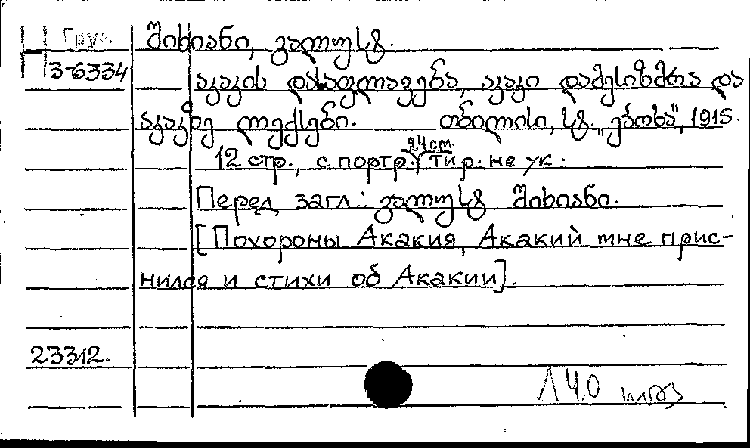 Груз
Н 3-6334
შიხიანი, გალუსტ.
აკაკის დასაფლავება, აკაკი დამესიზმრა და
აკაკზე ლექსები. თბილისი, სტ. „ეპოხა", 1915.
12 стр., с портр. 24 cm. тир. не ук.
Перед загл: გალუსტ შიხიანი.
[Похороны Акакия, Акакий мне прис-
нился и стихи об Акакии].
23312.
Л 40